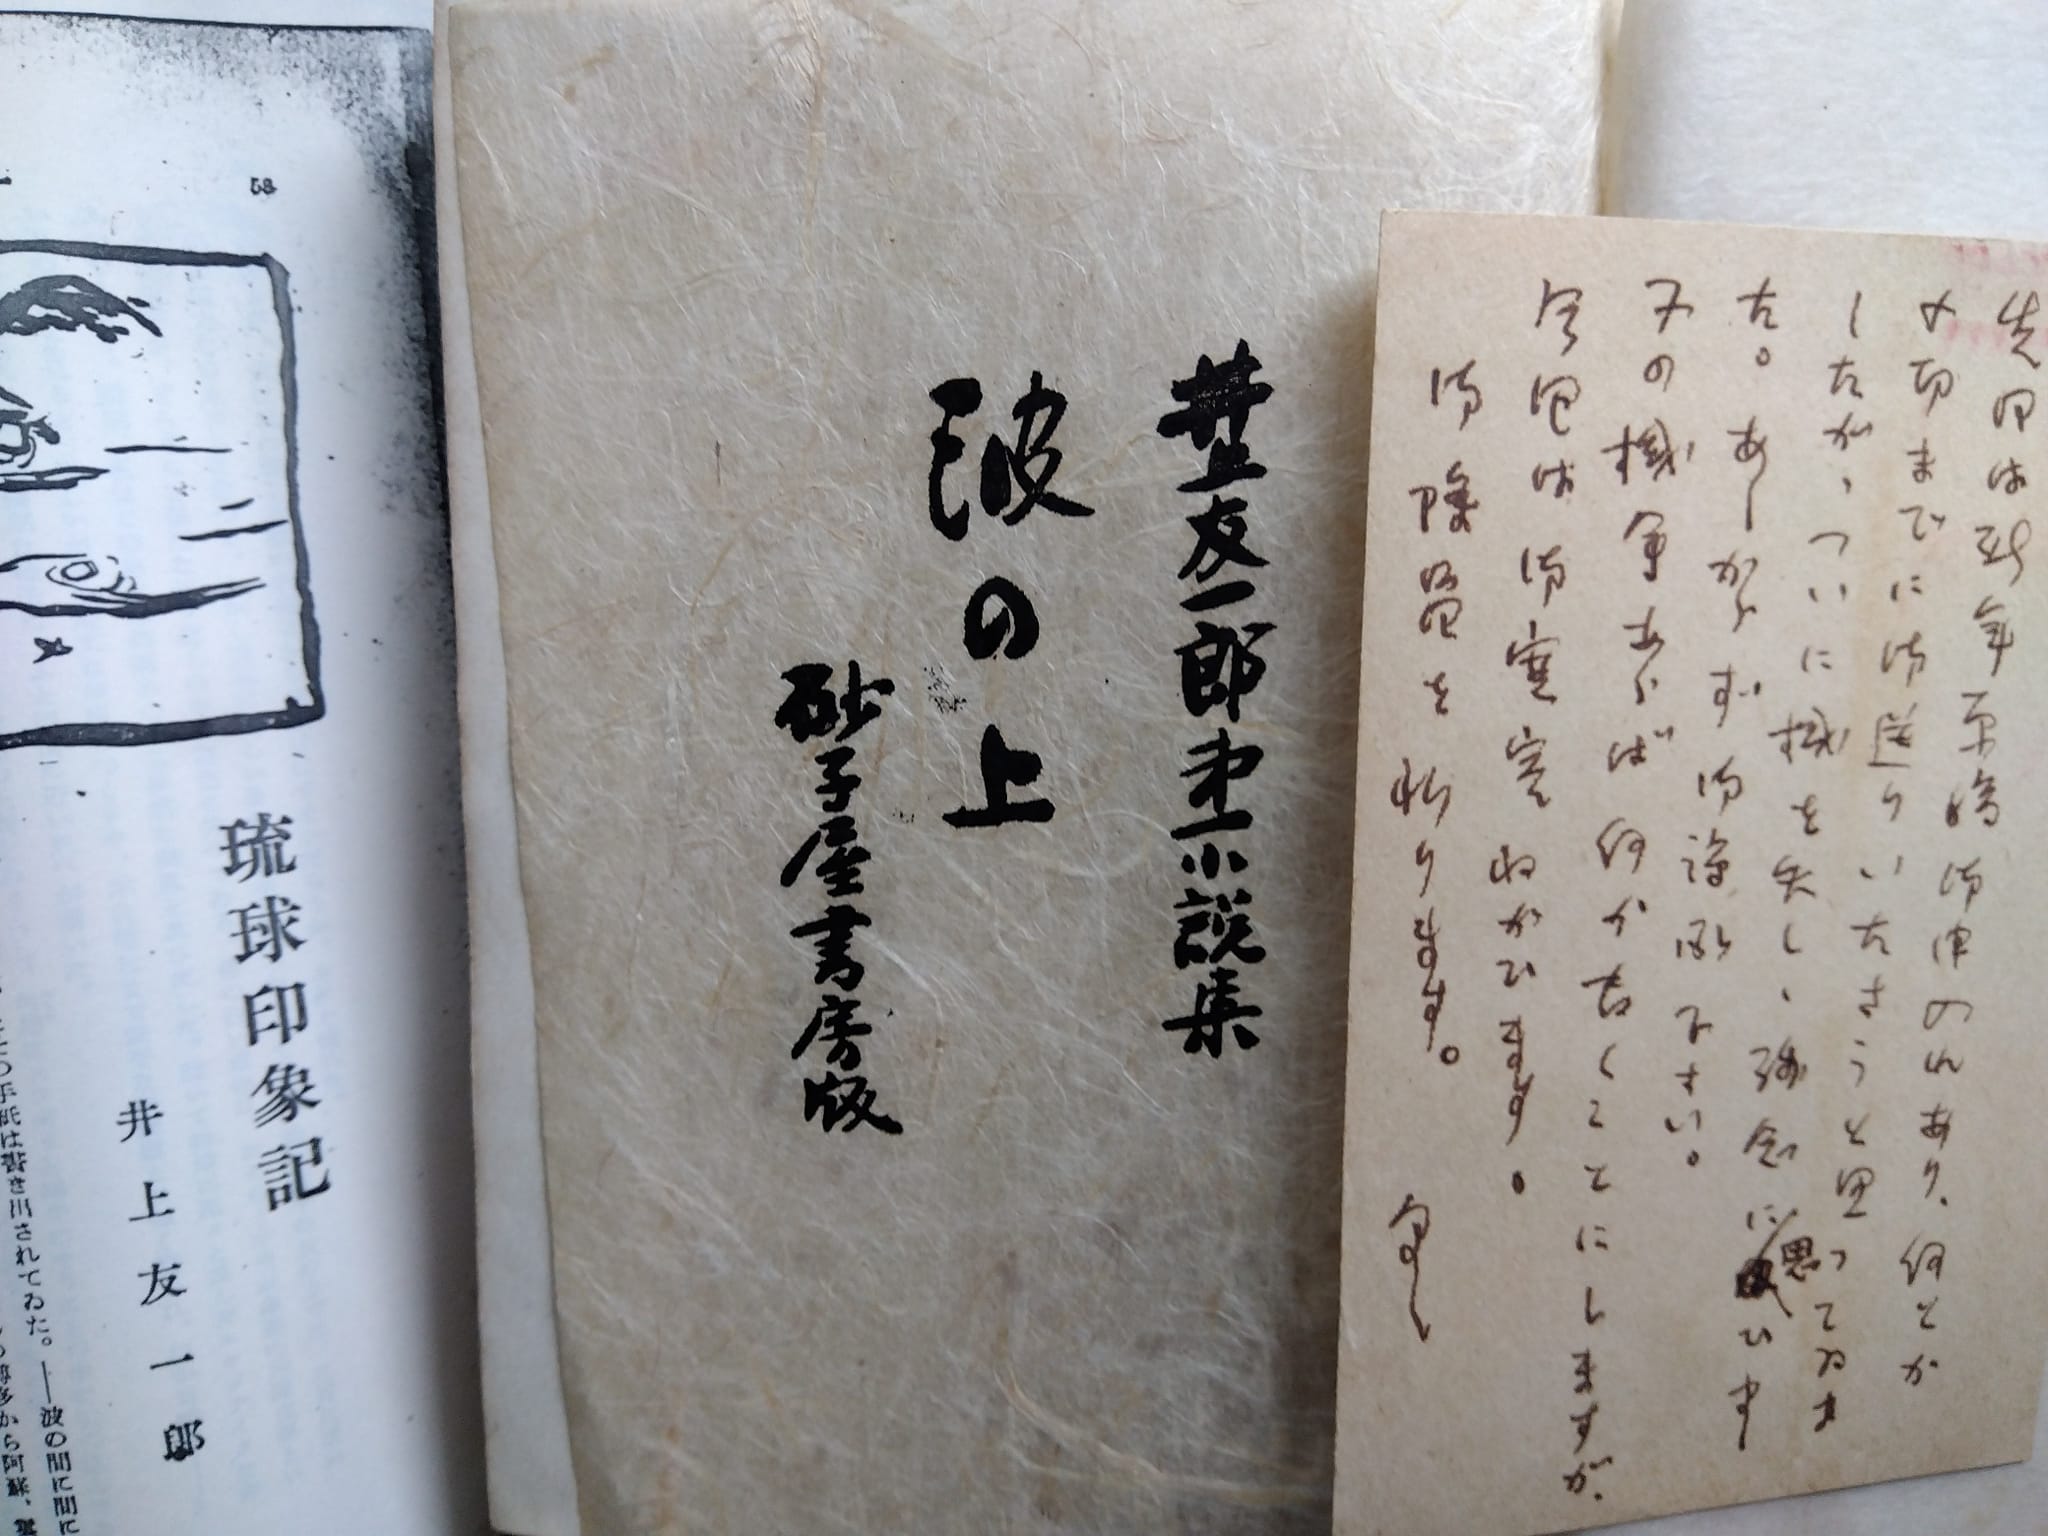 先日は新年原稿御申のれあり、何とか
〆切までに御送りいたさうと思つてゐま
したが、ついに機を失し、残念に思ひまし
た。あしからず御諒承下さい。
又の機会あらば何か書くことにしますが、
今回は御寛容ねがひます。
御隆昌を祈ります。
井上友一郎第一小説集
波の上
砂子屋書房版
58
琉球印象記
井上友一郎
手紙は書き出されてゐた。――波の間に間に
から阿蘇、